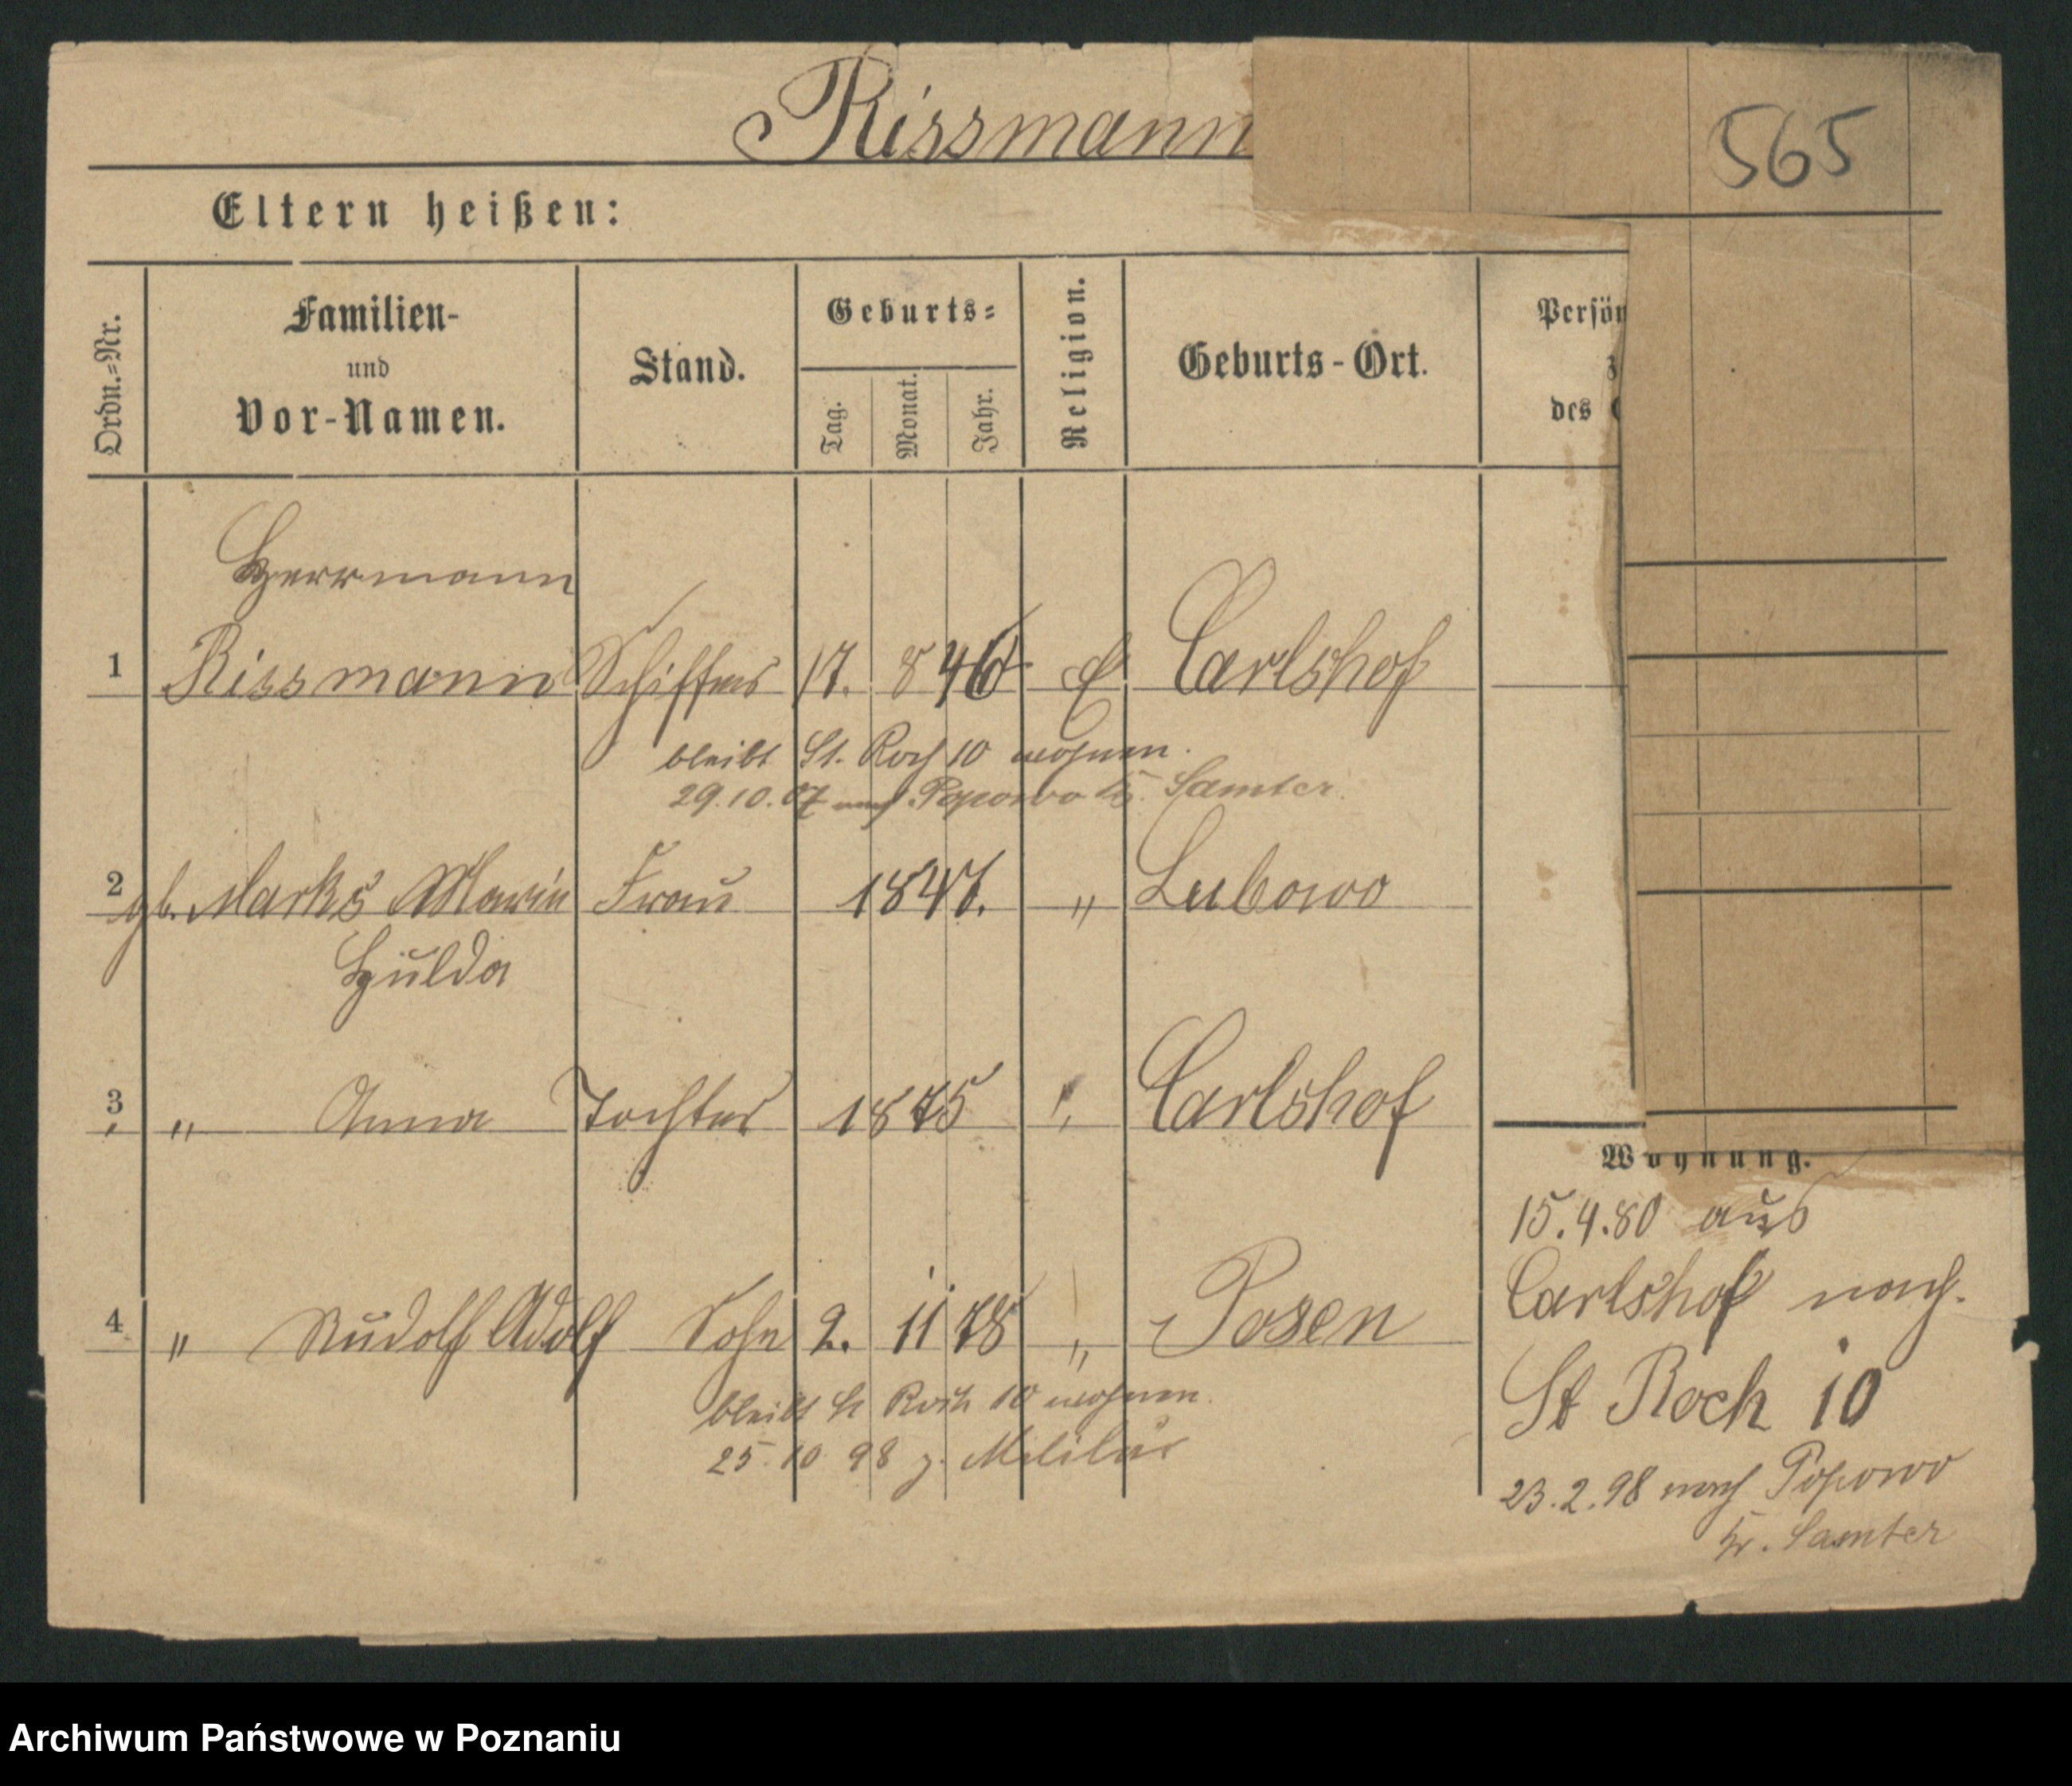 Rissmann
565
Eltern heißen:
Ordn.=Nr.
Familien-
und
Vor-Namen.
Stand.
Geburts=
Tag.
Monat.
Jahr.
Religion.
Geburts-Ort.
Persön
z
des
Herrmann
1 Rissmann Schiffer 17. 8 46 E Carlshof
bleibt St. Roch 10 wohnen.
29.10.07 nach Popowo Kr. Samter.
2 gb. Marks Marie Frau 1847. " Lubowo
Hulda
3 " Anna Tochter 1875 " Carlshof
Wohnung.
15.4.80 aus
Carlshof nach.
4 " Rudolf Adolf Sohn 2. 11 78 " Posen
St Roch 10
bleibt St Roch 10 wohnen.
25.10 98 z. Militär
23.2.98 nach Popowo
Kr. Samter
Archiwum Państwowe w Poznaniu